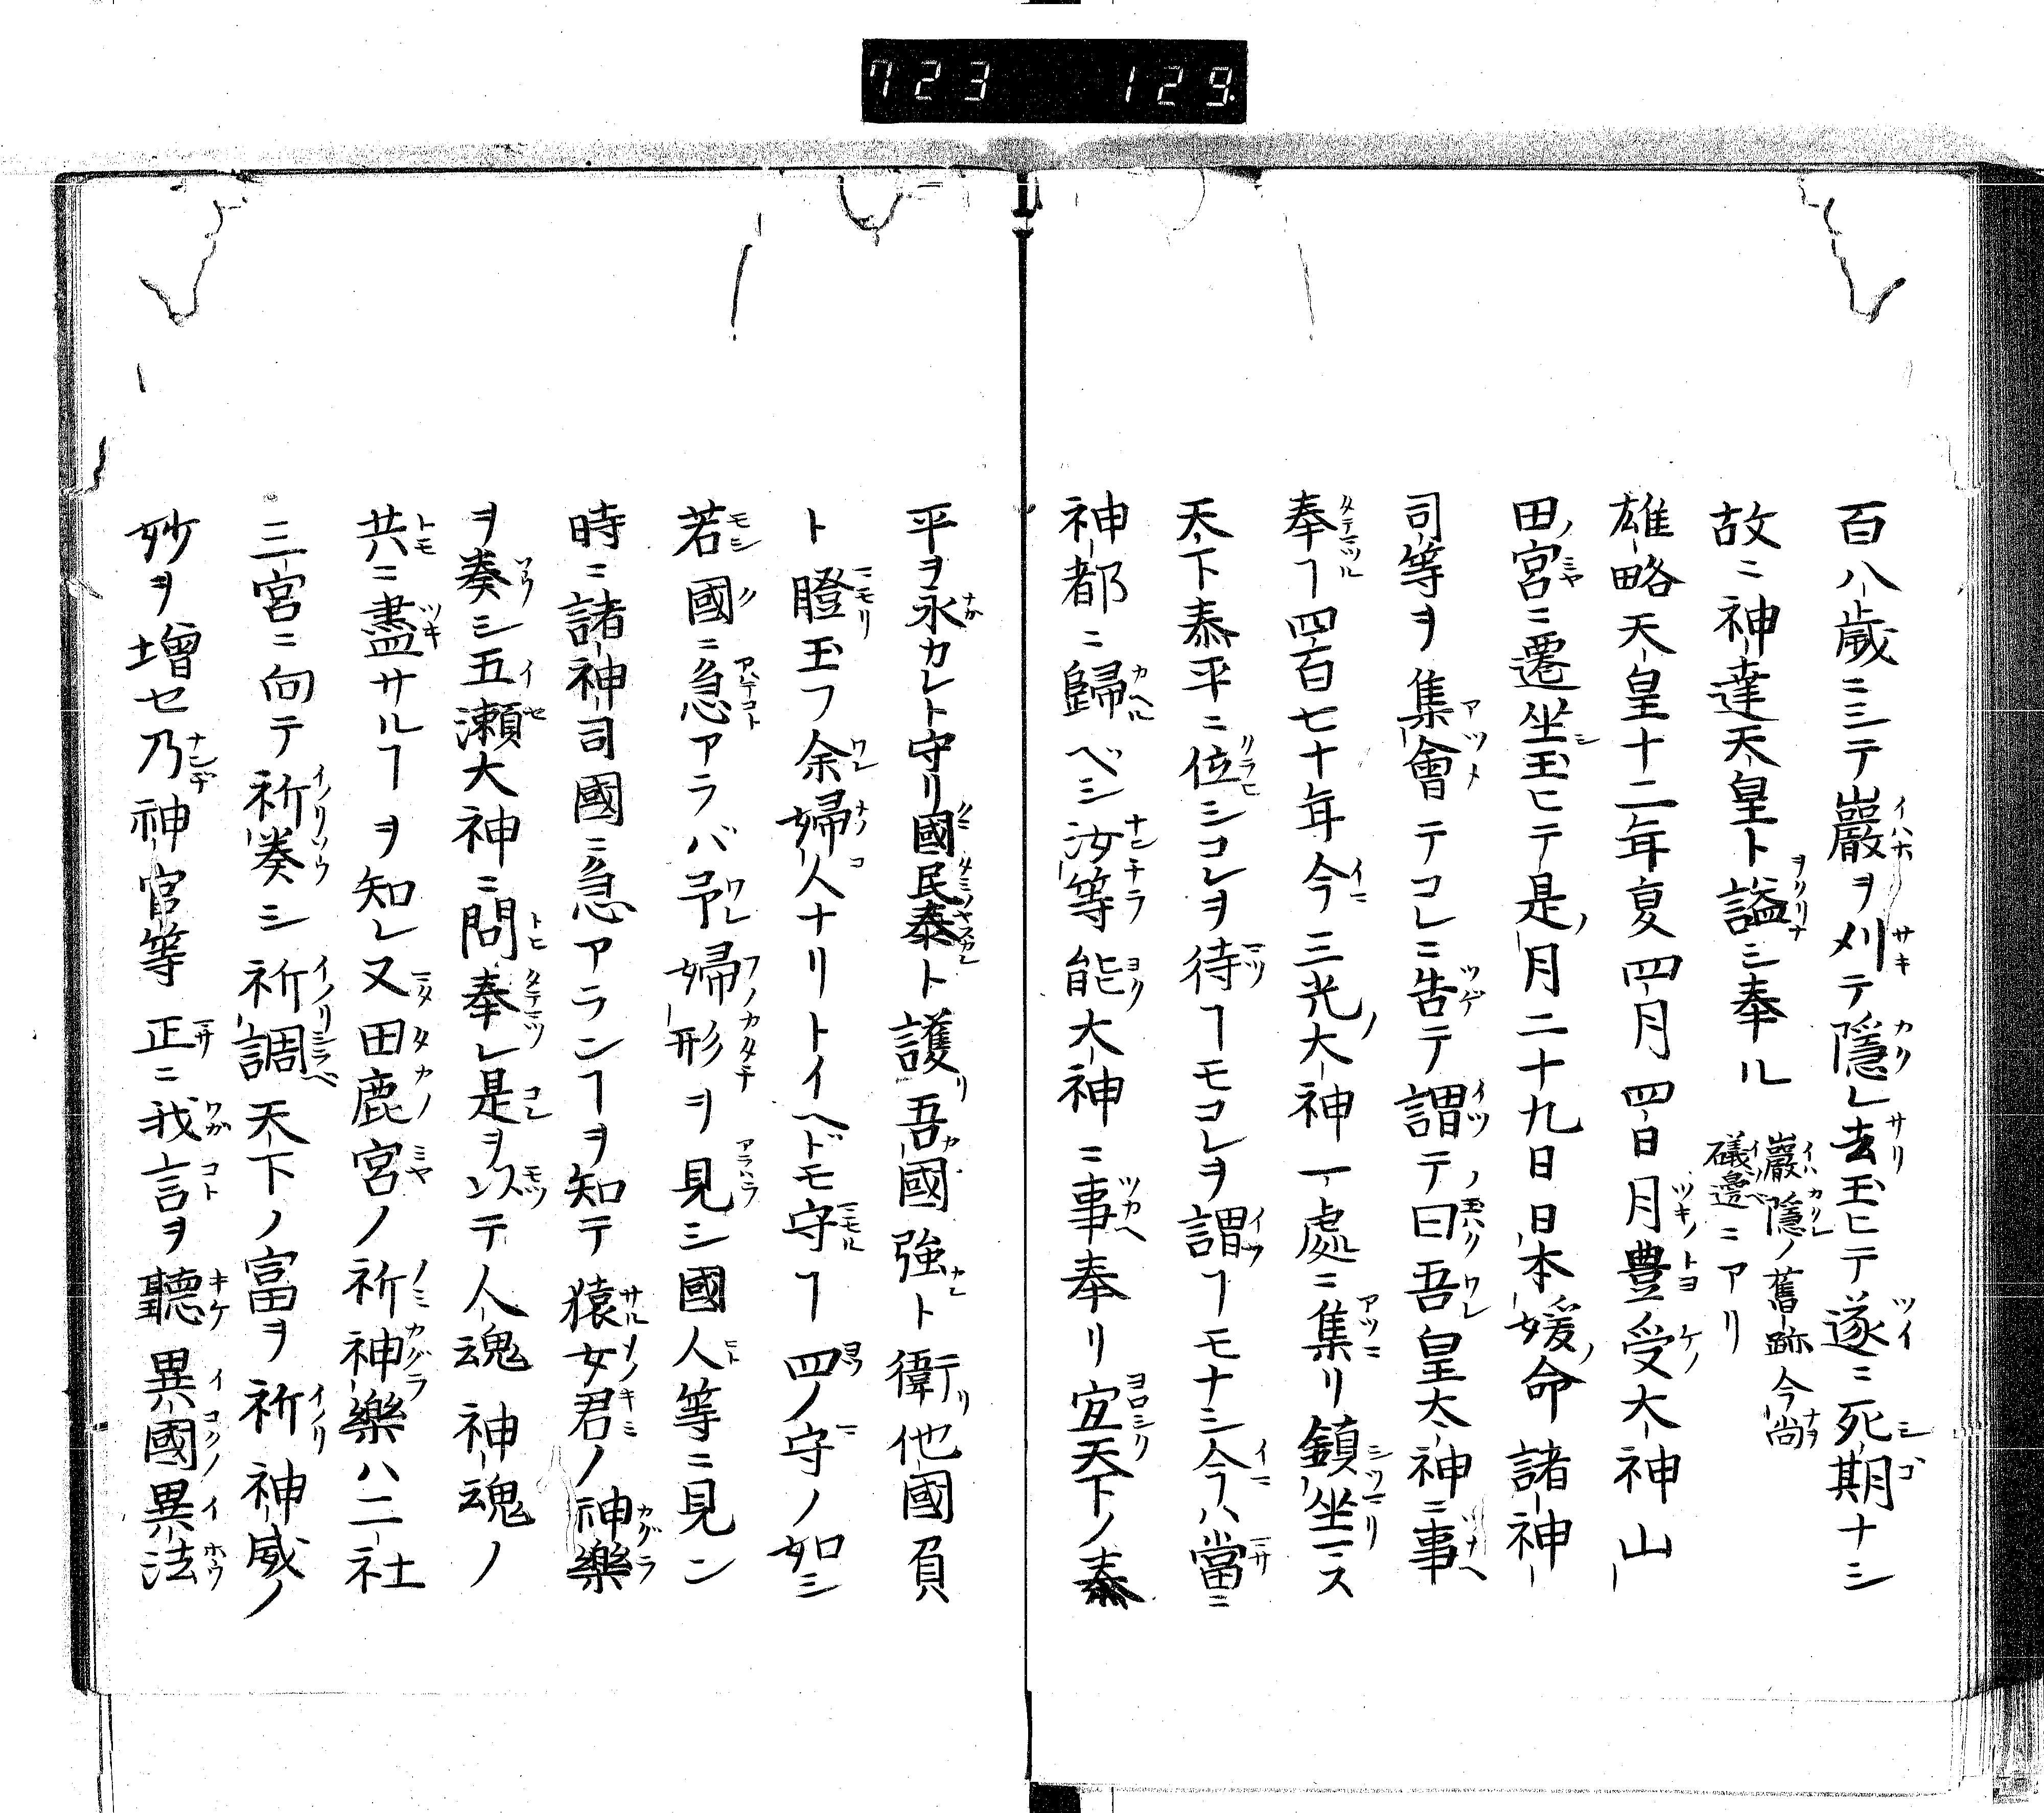 723 129
百八歳ニシテ巖ヲ刈テ隱レ去玉ヒテ遂ニ死期ナシ
故ニ神達天皇ト謚シ奉ル 巖隱ノ舊跡今尚
礒邊ニアリ
雄略天皇十二年夏四月四日月豊受大神山
田ノ宮ニ遷坐玉ヒテ是ノ月二十九日日本媛ノ命諸神
司等ヲ集會テコレニ告テ謂テノ曰吾皇太神ニ事
奉ヿ四百七十年今三光ノ大神一處ニ集リ鎮坐ス
天下泰平ニ位シコレヲ待ヿモコレヲ謂ヿモナシ今ハ當ニ
神都ニ歸ベシ汝等能大神ニ事奉リ宜天下ノ泰
平ヲ永カレト守リ國民泰ト護吾國強ト衛他國負
ト瞪玉フ余婦人ナリトイヘドモ守ヿ四ノ守ノ如シ
若國ニ急アラバ予婦形ヲ見シ國人等ニ見ン
時ニ諸神司國ニ急アランヿヲ知テ猿女君ノ神樂
ヲ奏シ五瀬大神ニ問奉レ是ヲ以テ人魂神魂ノ
共ニ盡サルヿヲ知レ又田鹿宮ノ祈神樂ハ二社
三宮ニ向テ祈奏シ祈調天下ノ富ヲ祈神威ノ
妙ヲ增セ乃神官等正ニ我言ヲ聽異國異法